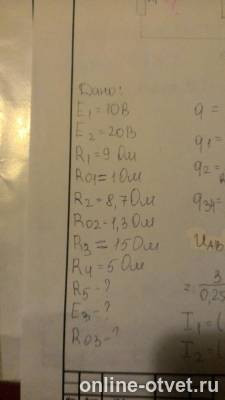 Дано:
E1=10В
E2=20В
R1=9 Ом
R01=1 Ом
R2=8,7 Ом
R02-1,3 Ом
R3=15 Ом
R4=5 Ом
R5-?
E3-?
R03-?
q =
q1 =
q2 =
UAB
= 3
0,25
I1=(
I2=(
online-otvet.ru